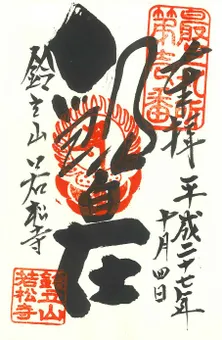 最上札所
第壱番
奉拝 平成二十七年
十月四日
自在
鈴立山 若松寺
鈴立山
若松寺